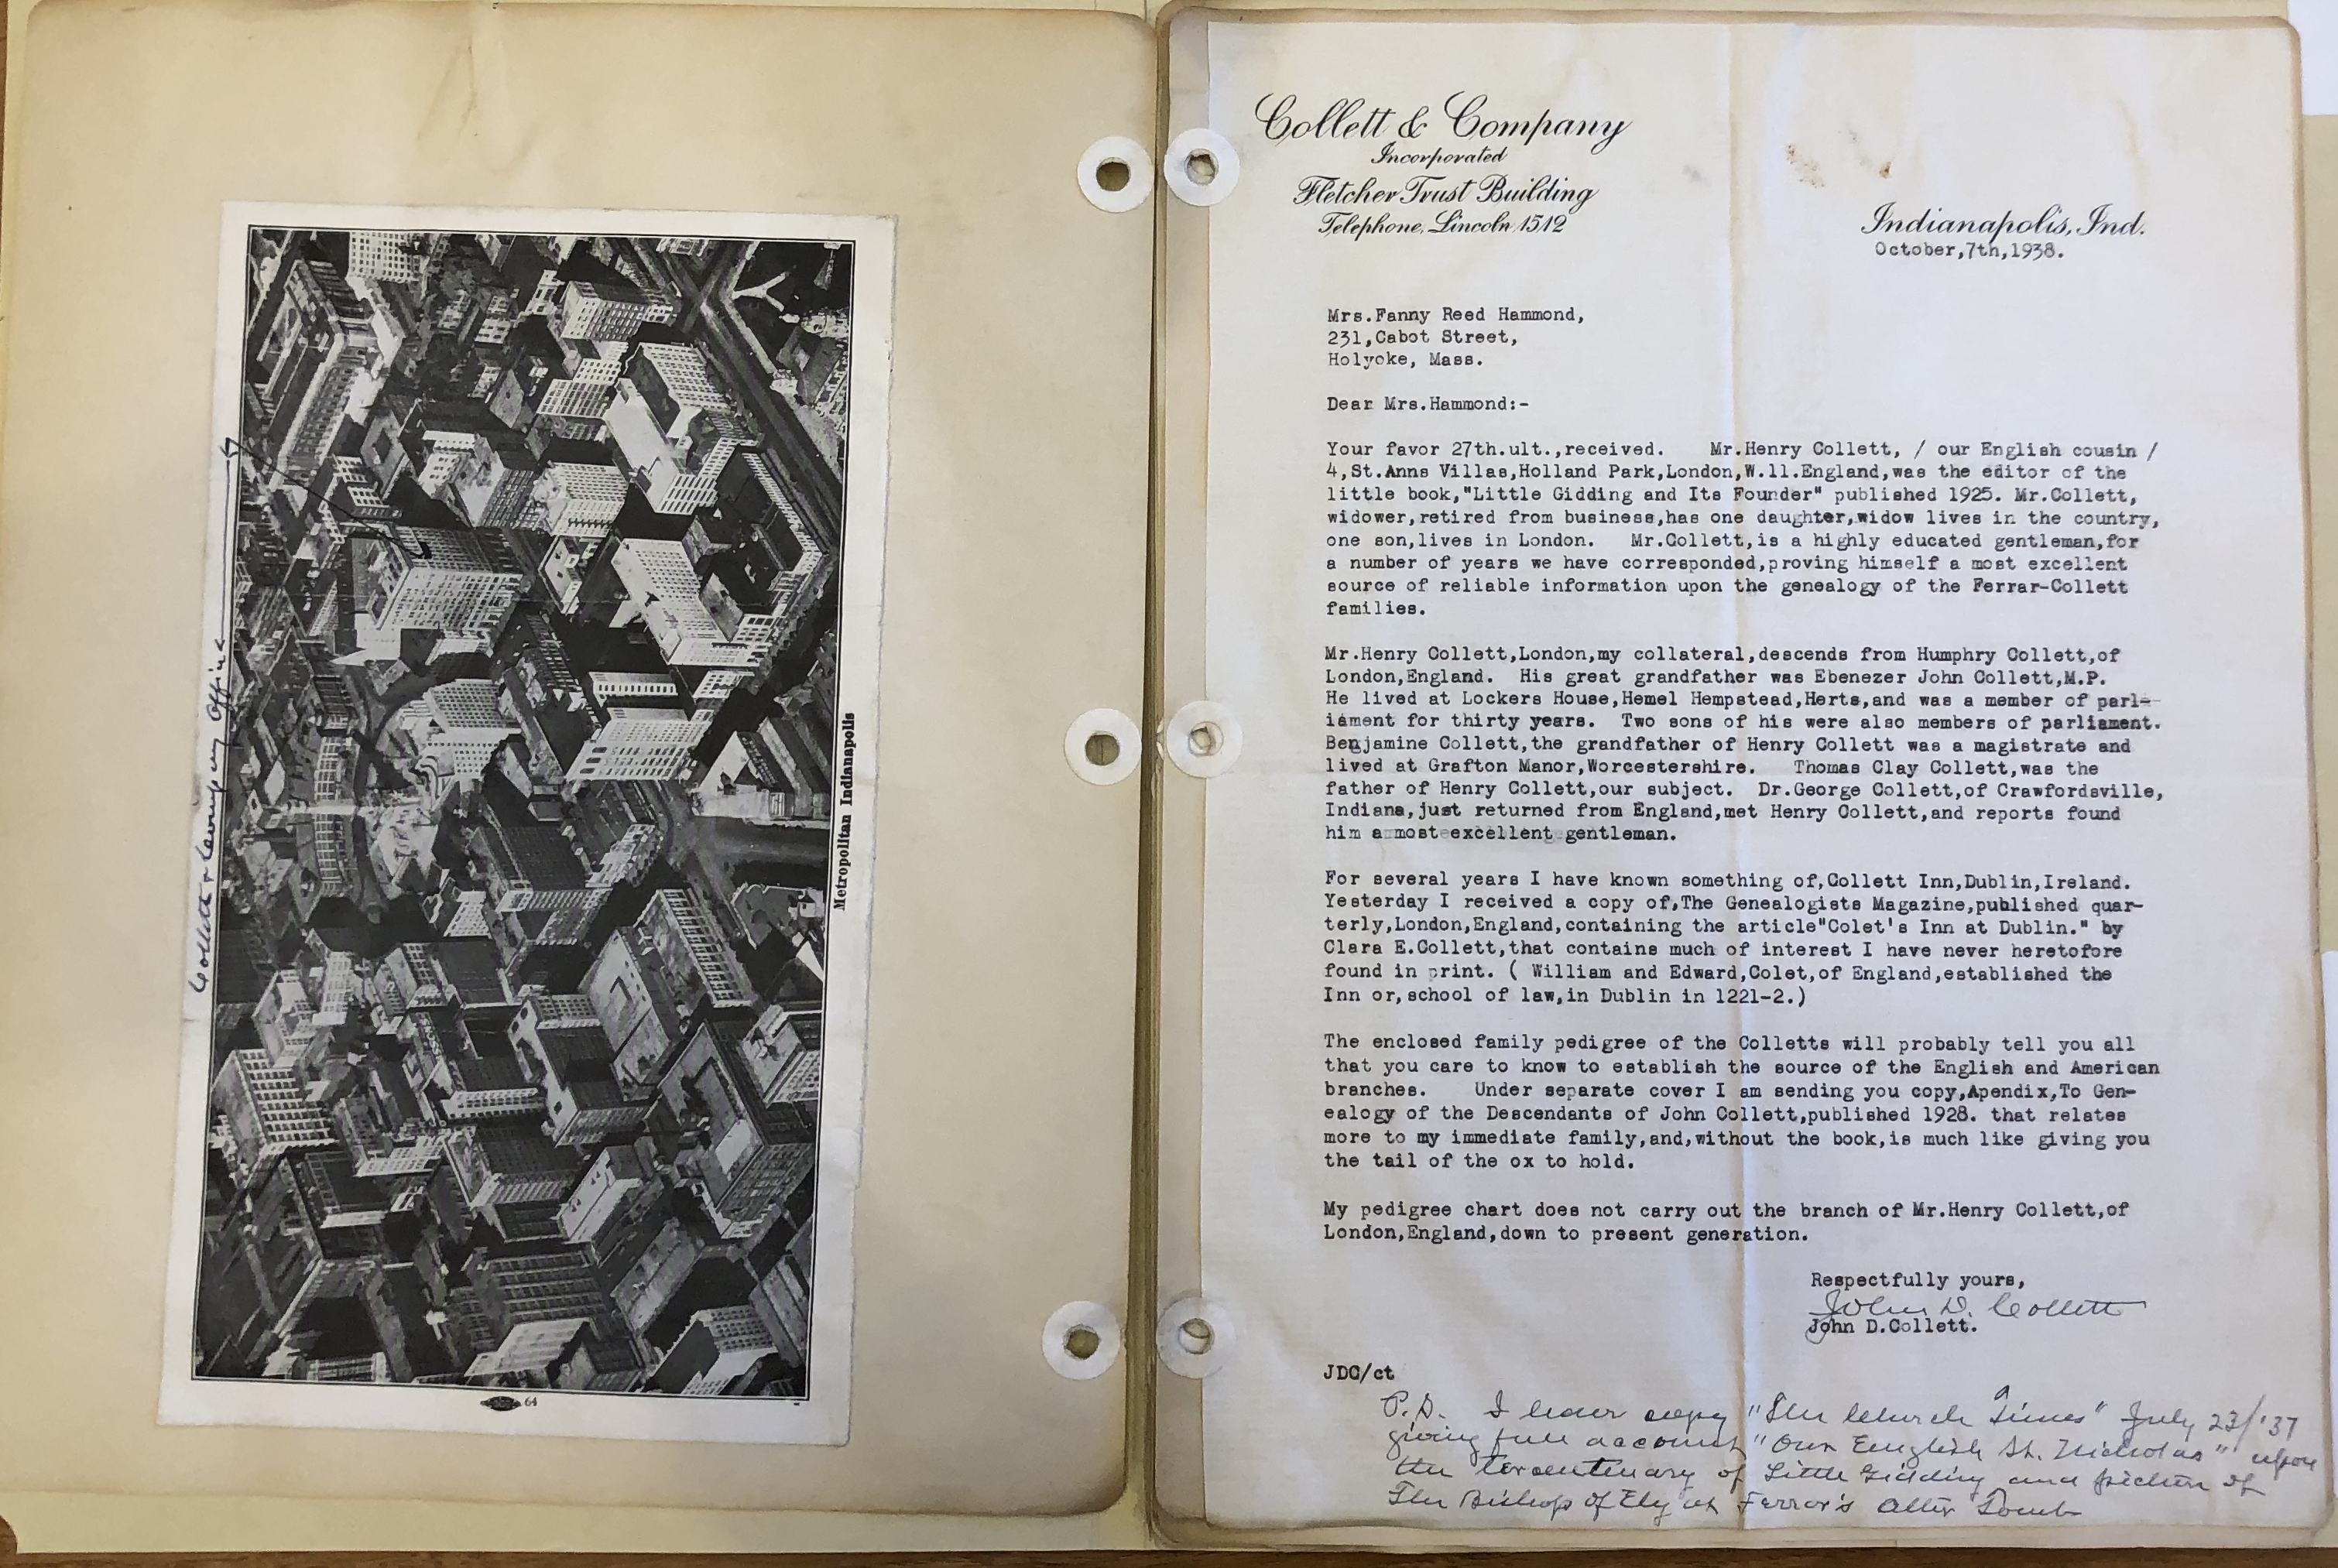 Collett & Company Office
Metropolitan Indianapolis
64
Collett & Company
Incorporated
Fletcher Trust Building
Telephone, Lincoln 1512
Indianapolis, Ind.
October,7th,1938.
Mrs.Fanny Reed Hammond,
231,Cabot Street,
Holyoke, Mass.
Dear Mrs.Hammond:-
Your favor 27th.ult.,received. Mr.Henry Collett, / our English cousin /
4,St.Anns Villas,Holland Park,London,W.11.England,was the editor of the
little book,"Little Gidding and Its Founder" published 1925. Mr.Collett,
widower,retired from business,has one daughter,widow lives in the country,
one son,lives in London. Mr.Collett,is a highly educated gentleman,for
a number of years we have corresponded,proving himself a most excellent
source of reliable information upon the genealogy of the Ferrar-Collett
families.
Mr.Henry Collett,London,my collateral,descends from Humphry Collett,of
London,England. His great grandfather was Ebenezer John Collett,M.P.
He lived at Lockers House,Hemel Hempstead,Herts,and was a member of parl-
iament for thirty years. Two sons of his were also members of parliament.
Benjamine Collett,the grandfather of Henry Collett was a magistrate and
lived at Grafton Manor,Worcestershire. Thomas Clay Collett,was the
father of Henry Collett,our subject. Dr.George Collett,of Crawfordsville,
Indiana,just returned from England,met Henry Collett,and reports found
him a most excellent gentleman.
For several years I have known something of,Collett Inn,Dublin,Ireland.
Yesterday I received a copy of,The Genealogists Magazine,published quar-
terly,London,England,containing the article"Colet's Inn at Dublin." by
Clara E.Collett,that contains much of interest I have never heretofore
found in print. ( William and Edward,Colet,of England,established the
Inn or,school of law,in Dublin in 1221-2.)
The enclosed family pedigree of the Colletts will probably tell you all
that you care to know to establish the source of the English and American
branches. Under separate cover I am sending you copy,Apendix,To Gen-
ealogy of the Descendants of John Collett,published 1928. that relates
more to my immediate family,and,without the book,is much like giving you
the tail of the ox to hold.
My pedigree chart does not carry out the branch of Mr.Henry Collett,of
London,England,down to present generation.
Respectfully yours,
John D. Collett
John D.Collett.
JDC/ct
P.S. I have copy "The Church Times" July 23/'37
giving full account "Our English St. Nicholas" upon
the tercentenary of Little Gidding and picture of
The Bishop of Ely at Ferrar's Alter Tomb